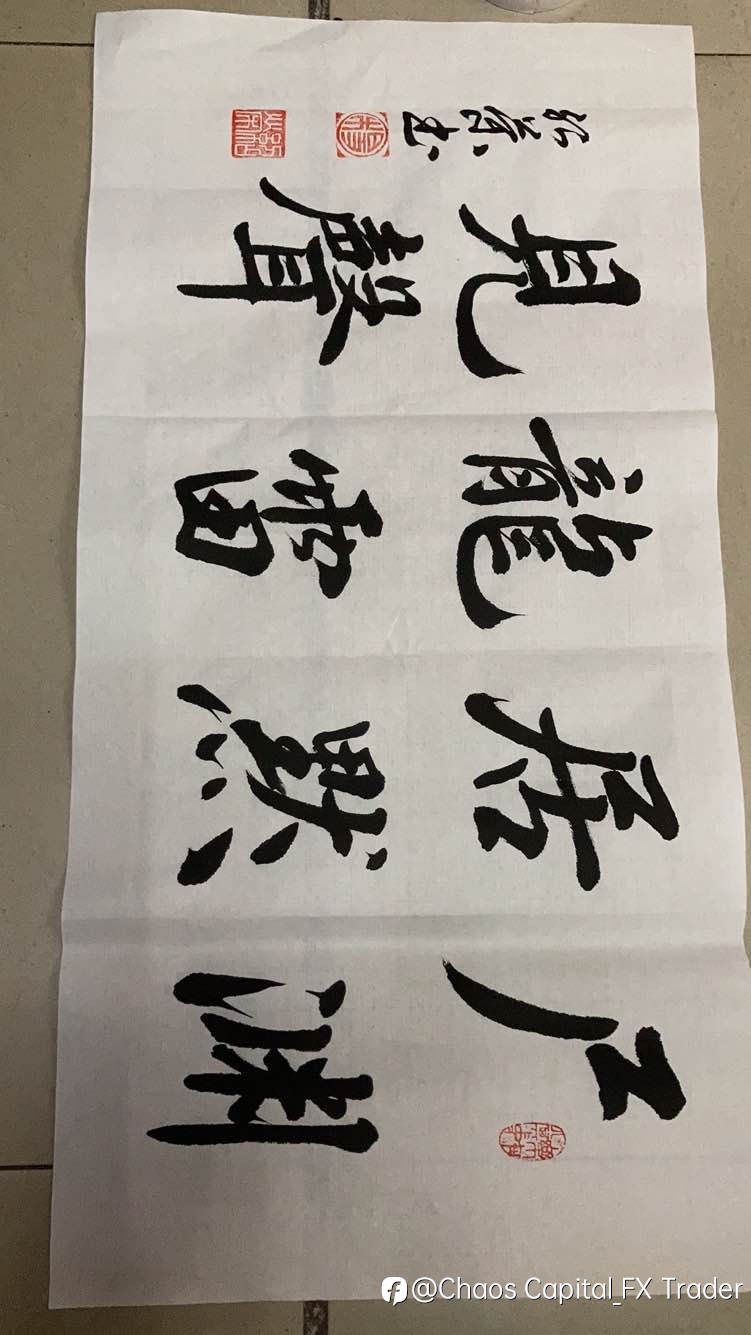 尸居龍見
淵默雷聲
书
@Chaos Capital_FX Trader